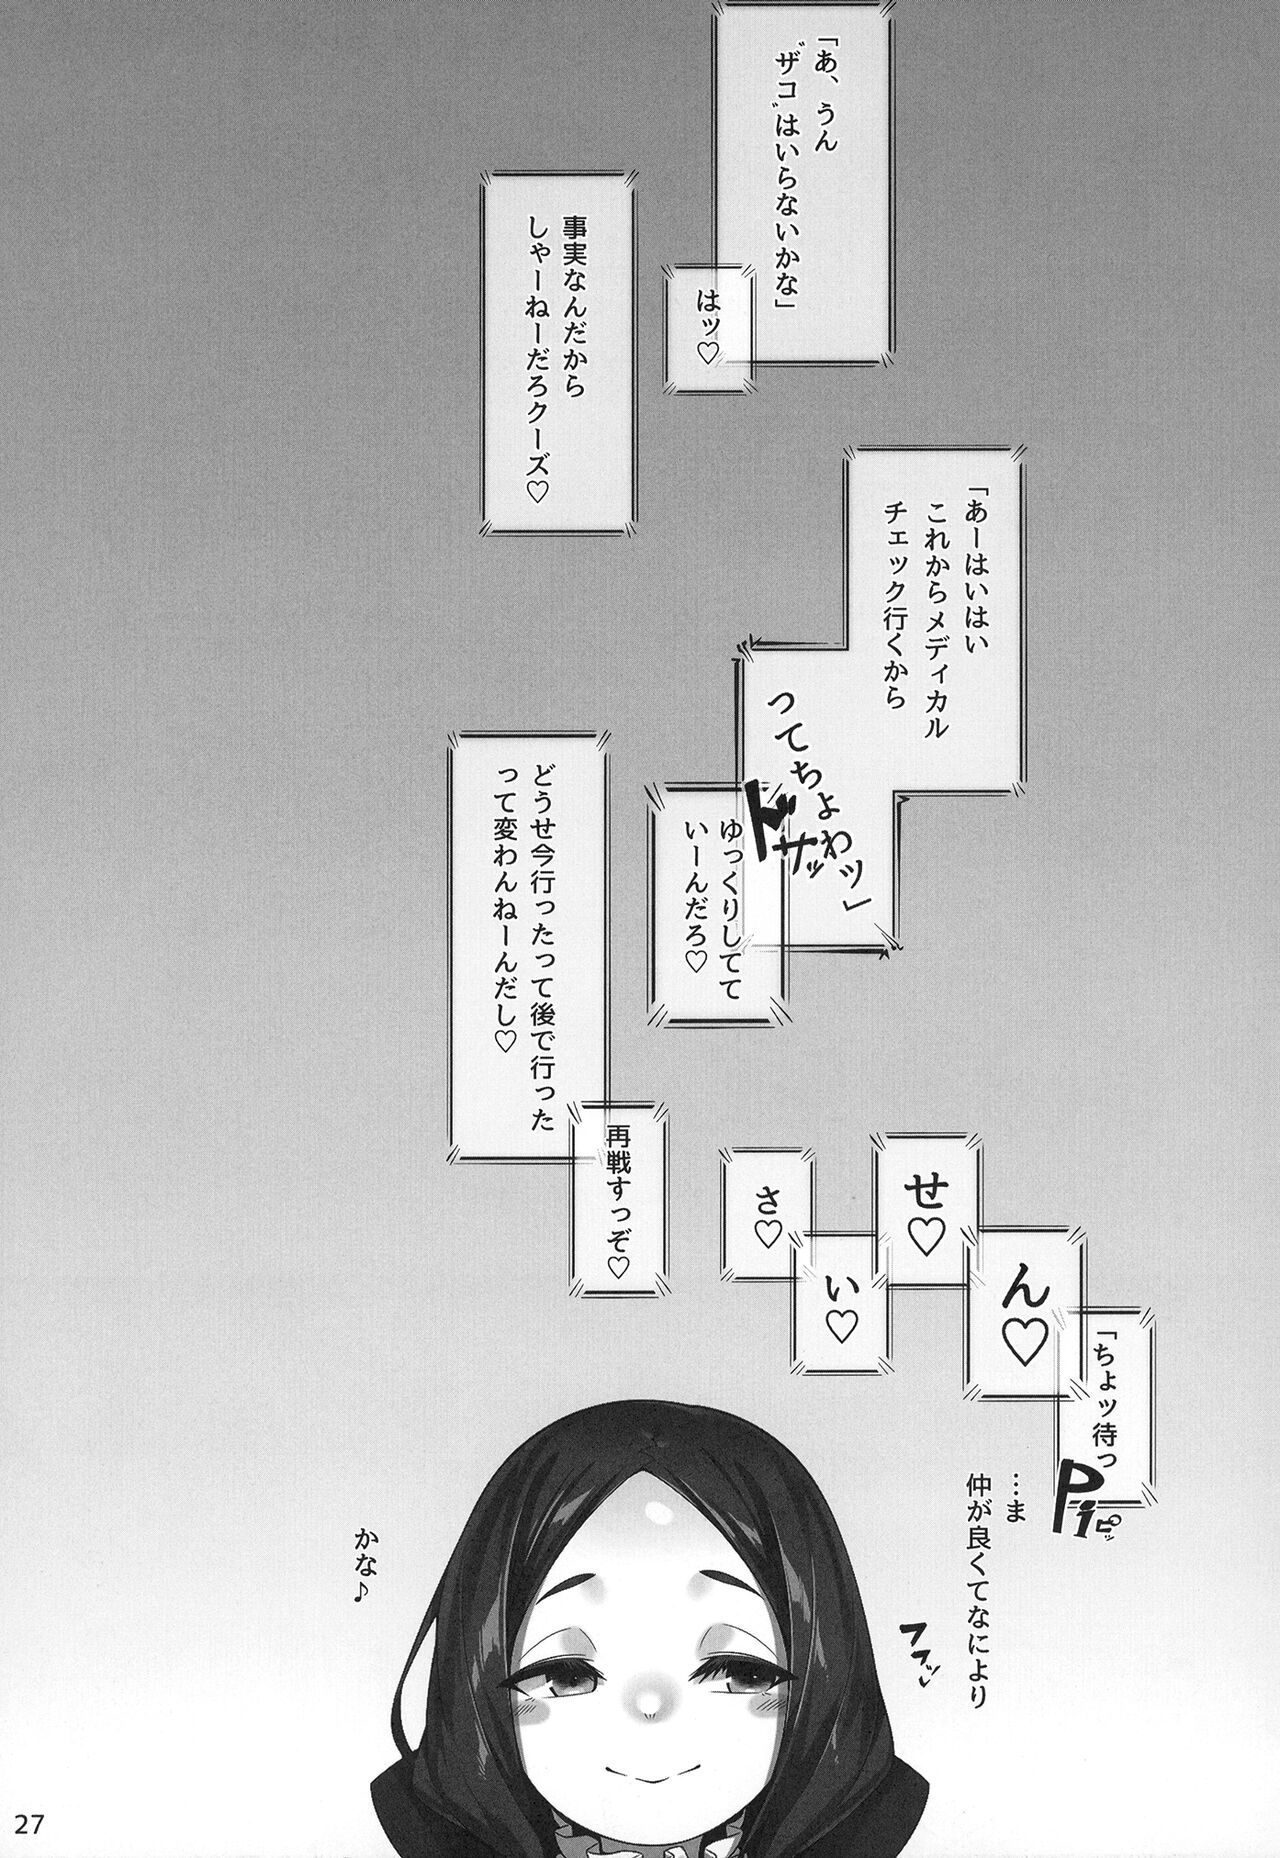 「あ、うん
〝ザコ〟はいらないかな」
はッ♡
事実なんだから
しゃーねーだろクーズ♡
「あーはいはい
これからメディカル
チェック行くから
ってちょわッ」
ドサッ
ゆっくりしてて
いーんだろ♡
どうせ今行ったって後で行った
って変わんねーんだし♡
再戦すっぞ♡
さ♡
い♡
せ♡
ん♡
「ちょッ待っ
Piピッ
…ま
仲が良くてなにより
フフッ
かな♪
27